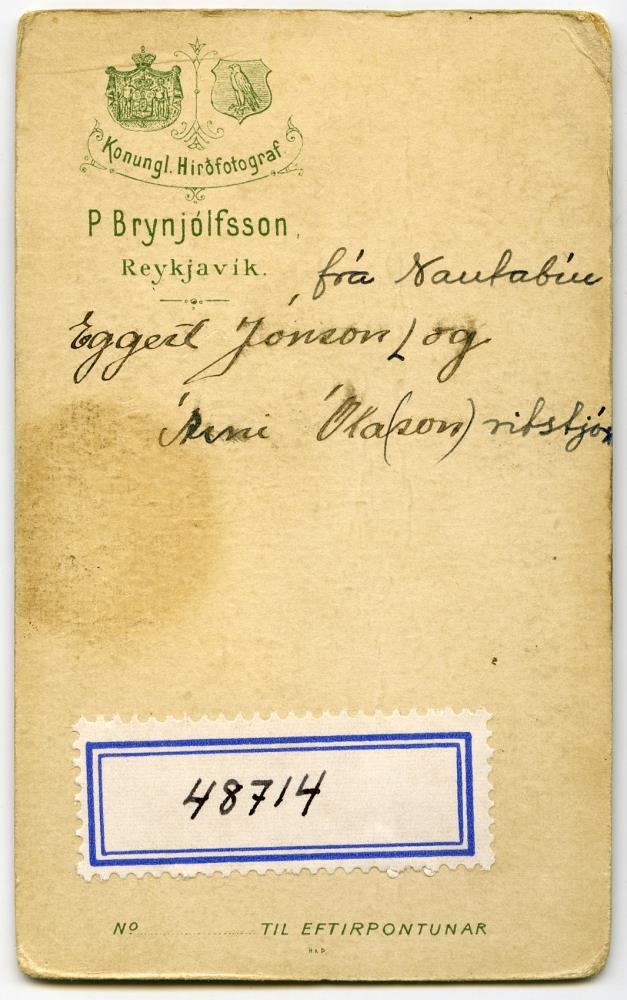 Konungl. Hirðfotograf.
P Brynjólfsson,
Reykjavík.
frá Nautabúu
Eggert Jónson, og
Árni Óla(son) ritstjór
48714
No TIL EFTIRPONTUNAR
H & P.